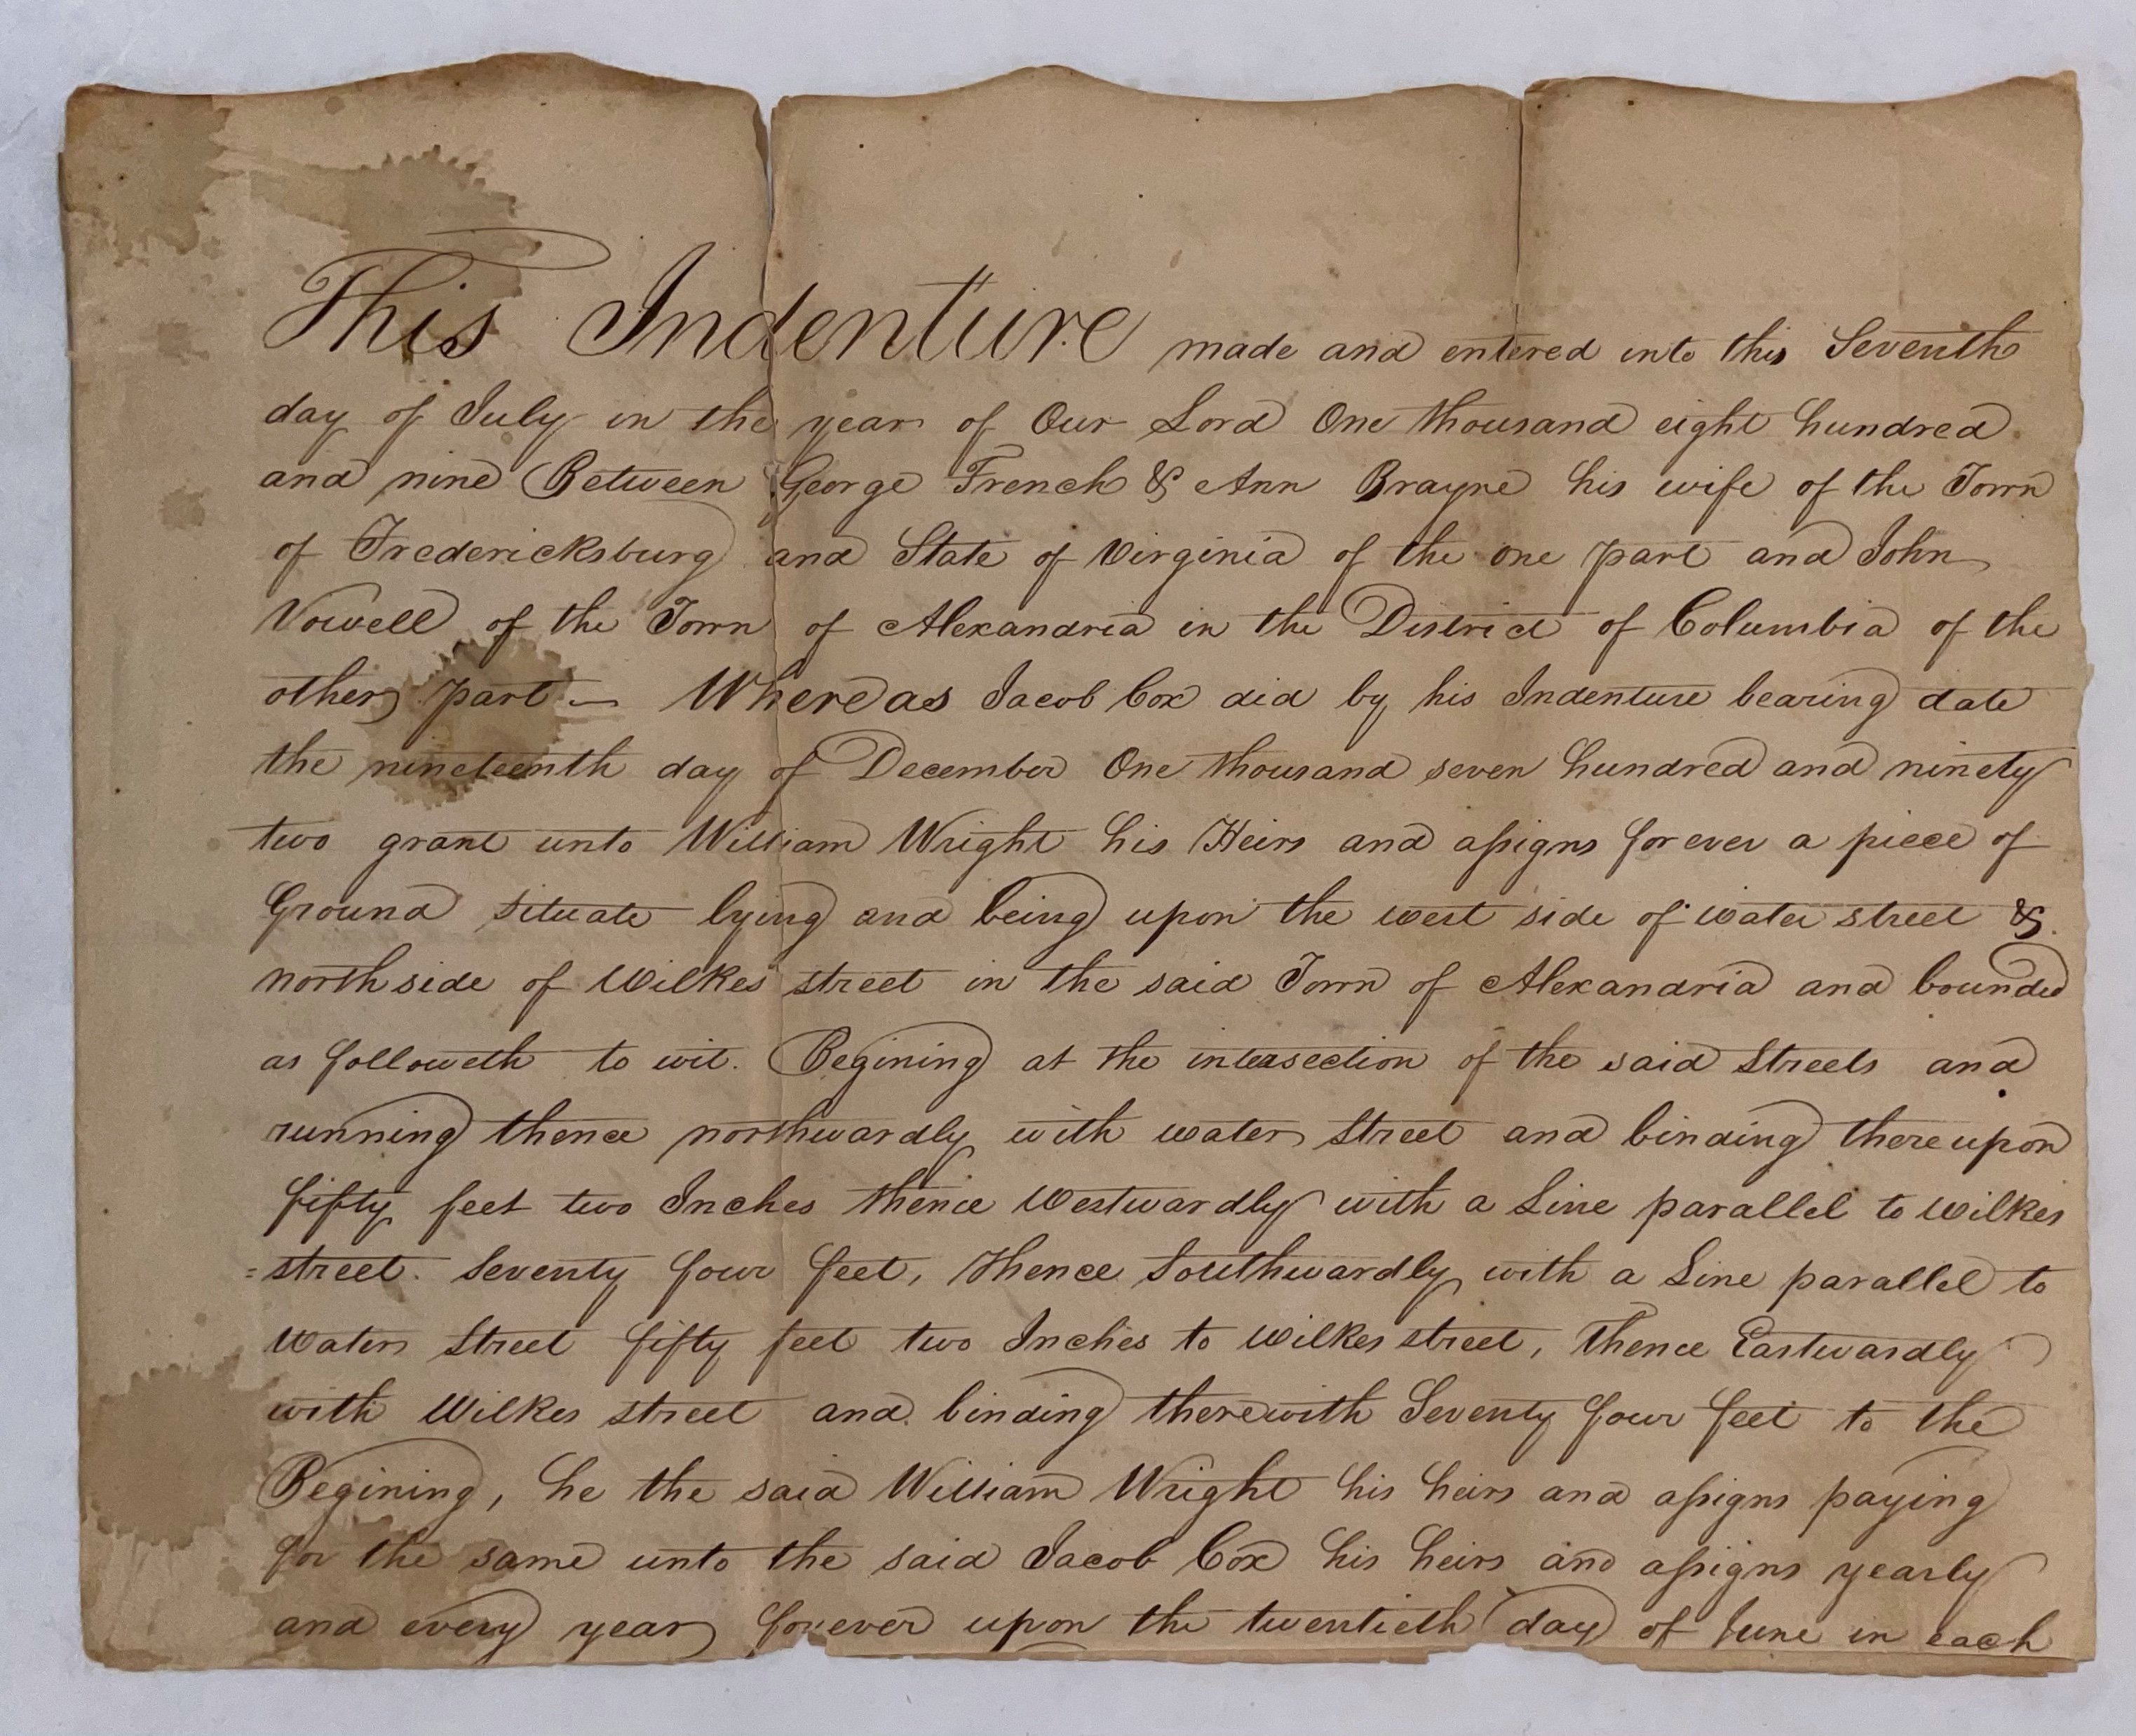 This Indenture made and entered into this Seventh
day of July in the year of Our Lord One thousand eight hundred
and nine Between George French & Ann Brayne his wife of the Town
of Fredericksburg and State of Virginia of the one part and John
Vowell of the Town of Alexandria in the District of Columbia of the
other part — Whereas Jacob Cox did by his Indenture bearing date
the nineteenth day of December One thousand seven hundred and ninety
two grant unto William Wright his Heirs and aſsigns forever a piece of
Ground situate lying and being upon the west side of water street &
north side of Wilkes street in the said Town of Alexandria and bounded
as followeth to wit. Begining at the intersection of the said Streets and
running thence northwardly with water Street and binding thereupon
fifty feet two Inches thence Westwardly with a Line parallel to Wilkes
=street. Seventy four feet, Thence Southwardly with a Line parallel to
Water Street fifty feet two Inches to Wilkes street, Thence Eastwardly
with Wilkes street and binding therewith Seventy four feet to the
Begining, he the said William Wright his heirs and aſsigns paying
for the same unto the said Jacob Cox his heirs and aſsigns yearly
and every year forever upon the twentieth day of June in each